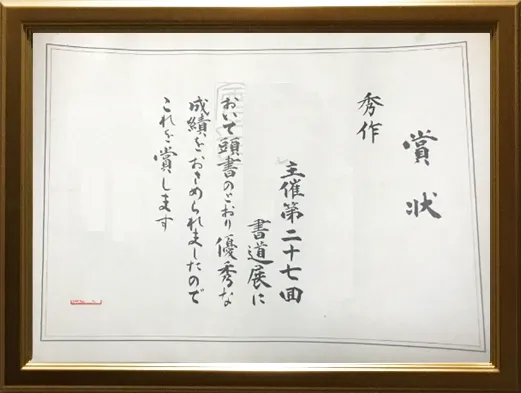 賞状
秀作
主催第二十七回
書道展に
おいて頭書のとおり優秀な
成績をおさめられましたので
これを賞します